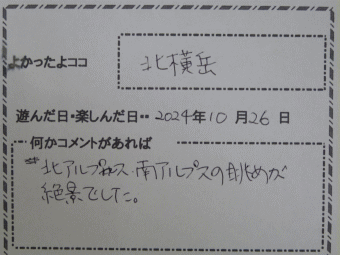 よかったよココ 北横岳
遊んだ日・楽しんだ日・・ 2024年10月26日
何かコメントがあれば
北アルプス・南アルプスの眺めが
絶景でした。